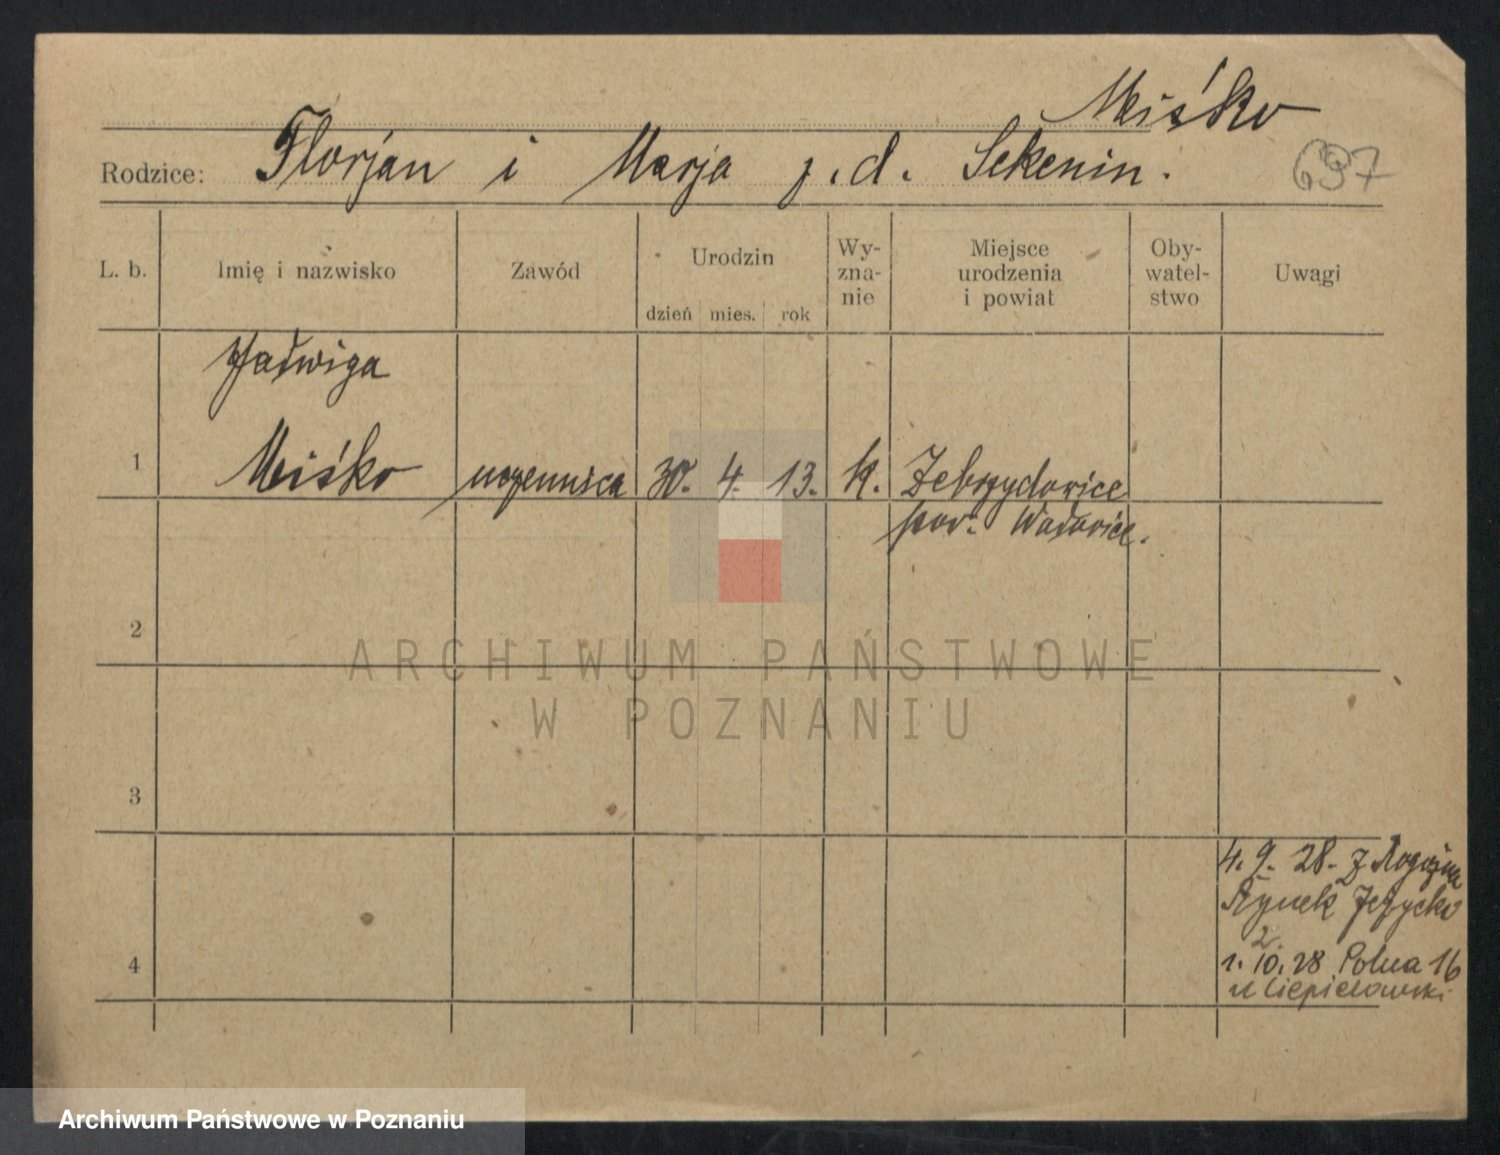 Miśko
Rodzice: Florjan i Marja z.d. Sekenin. 697
L. b. Imię i nazwisko Zawód Urodzin dzień mies. rok Wy-zna-nie Miejsce urodzenia i powiat Oby-watel-stwo Uwagi
Jadwiga
1 Miśko uczennica 30. 4. 13. k. Zebrzydowice
pow. Wadowice.
2
ARCHIWUM PAŃSTWOWE
W POZNANIU
3
4. 9. 28. z Rogoźna
Rynek Jeżycki
2.
4 1. 10. 28 Polna 16
u Ciepielowski
Archiwum Państwowe w Poznaniu